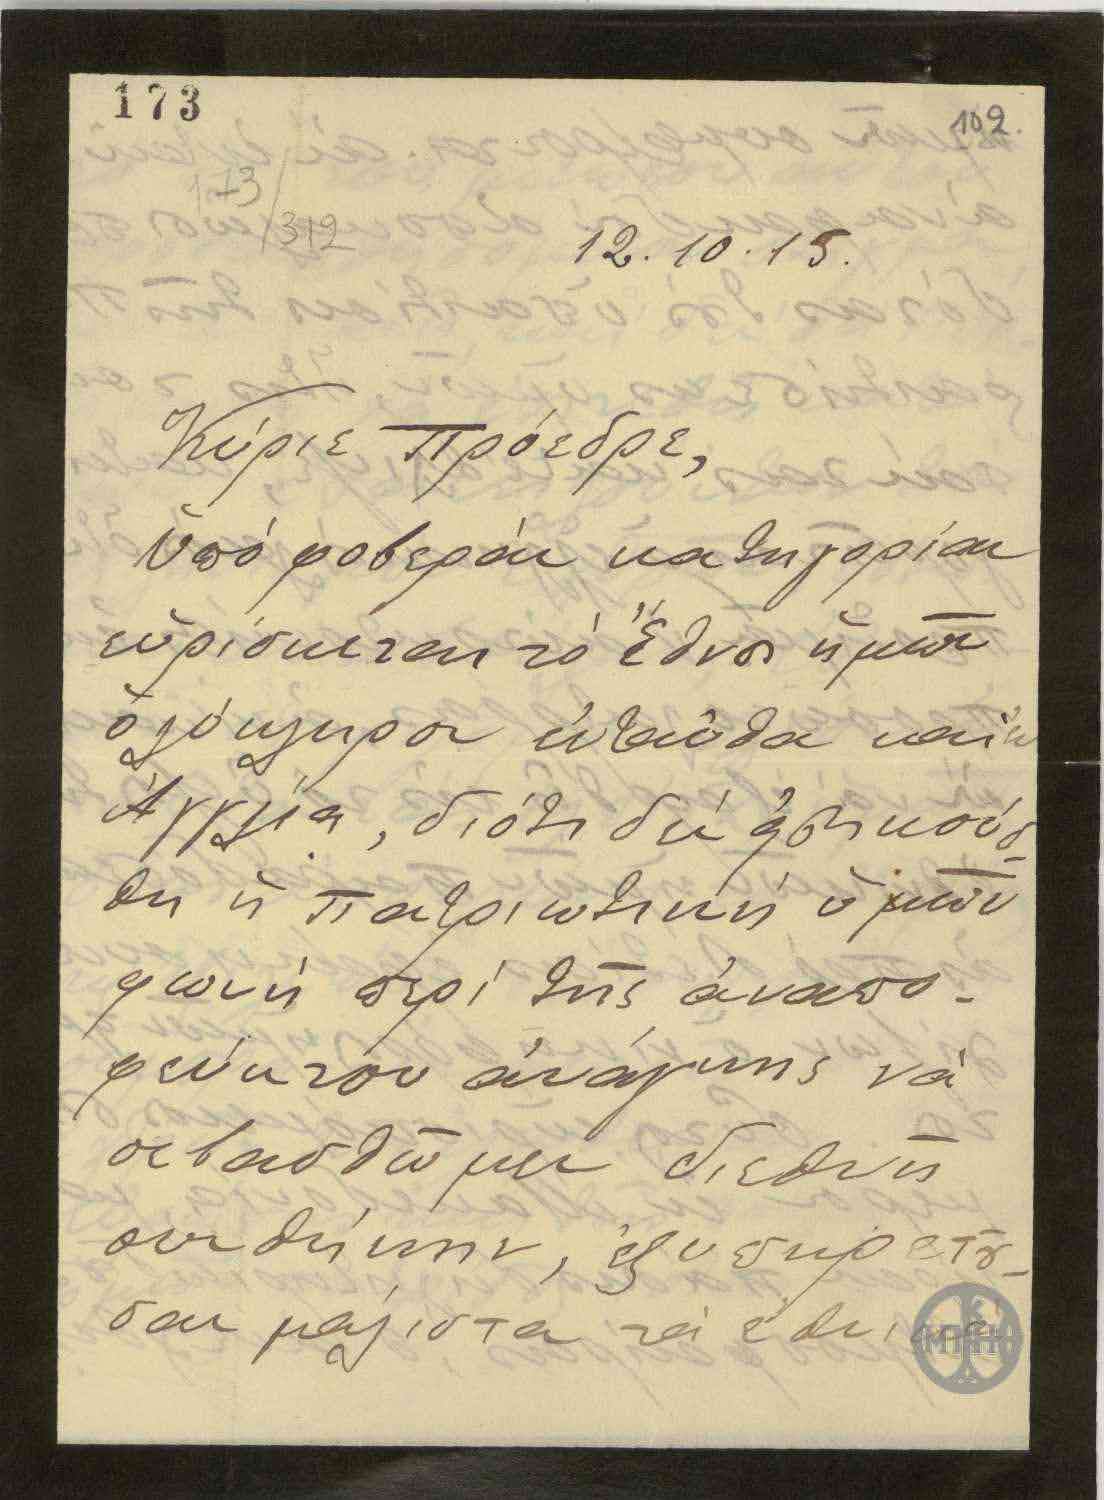 173
102.
173/312
12.10.15.
Κύριε Πρόεδρε,
Ὑπό φοβεράν κατηγορίαν
εὑρίσκεται τό Ἔθνος ἡμῶν
ὁλόκληρον ἐνταῦθα καί ἐν
Ἀγγλίᾳ, διότι δέν ἠκούσ-
θη ἡ πατριωτική ὑμῶν
φωνή περί τῆς ἀναπο-
φεύκτου ἀνάγκης νά
σεβασθῶμεν διεθνῆ
συνθήκην, ἐξυπηρετοῦ-
σαν μάλιστα τά ἐθνικά
ΜΠΗ